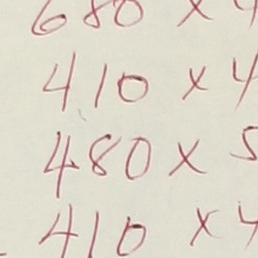 680 x 4
410 x 4
480 x 5
410 x 4